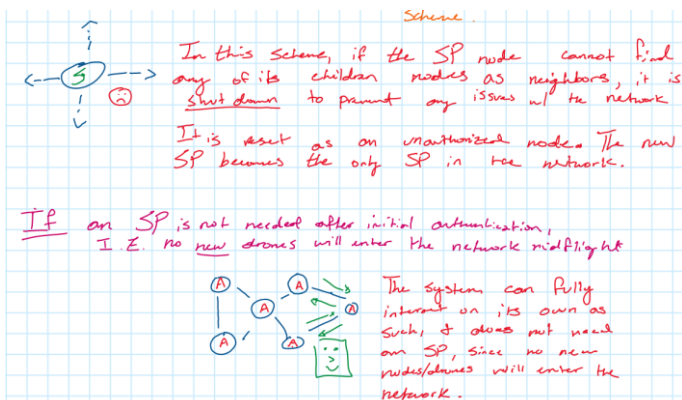 Scheme.
S
In this scheme, if the SP node cannot find
any of its children nodes as neighbors, it is
shut down to prevent any issues w/ the network
It is reset as an unauthorized node. The new
SP becomes the only SP in the network.
If an SP is not needed after initial authentication,
I.E. no new drones will enter the network midflight
A A
A A
A A
The system can fully
interact on its own as
such, & does not need
an SP, since no new
nodes/drones will enter the
network.